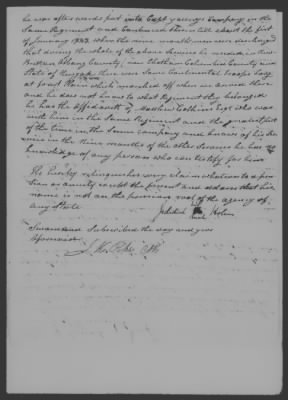 he was afterwards put into Capt youngs Company in the
Same Regiment and Continued there till about the first
of January 1783 when the nine months men were discharged
that during the whole of the above Service he resided in New
Britain Albany County, now Chatham Columbia County and
State of Newyork there were Some Continental troops lay
at fort Plain which marched off when we arrived there
and he does not know to what Regiment they belonged
he has the affidavit of Matthew Collins Esqr who was
with him in the Same Regiment and the greatest part
of the time in the Same company and knows of his Ser
vice in the Nine months of the other Service he has no
knowledge of any person who can testify for him
He hereby relinquishes every claim whatever to a pen
sion or annuity except the present and declares that his
name is not on the pension roll of the agency of
any State
his mark
Sworn and Subscribed the day and year
aforesaid